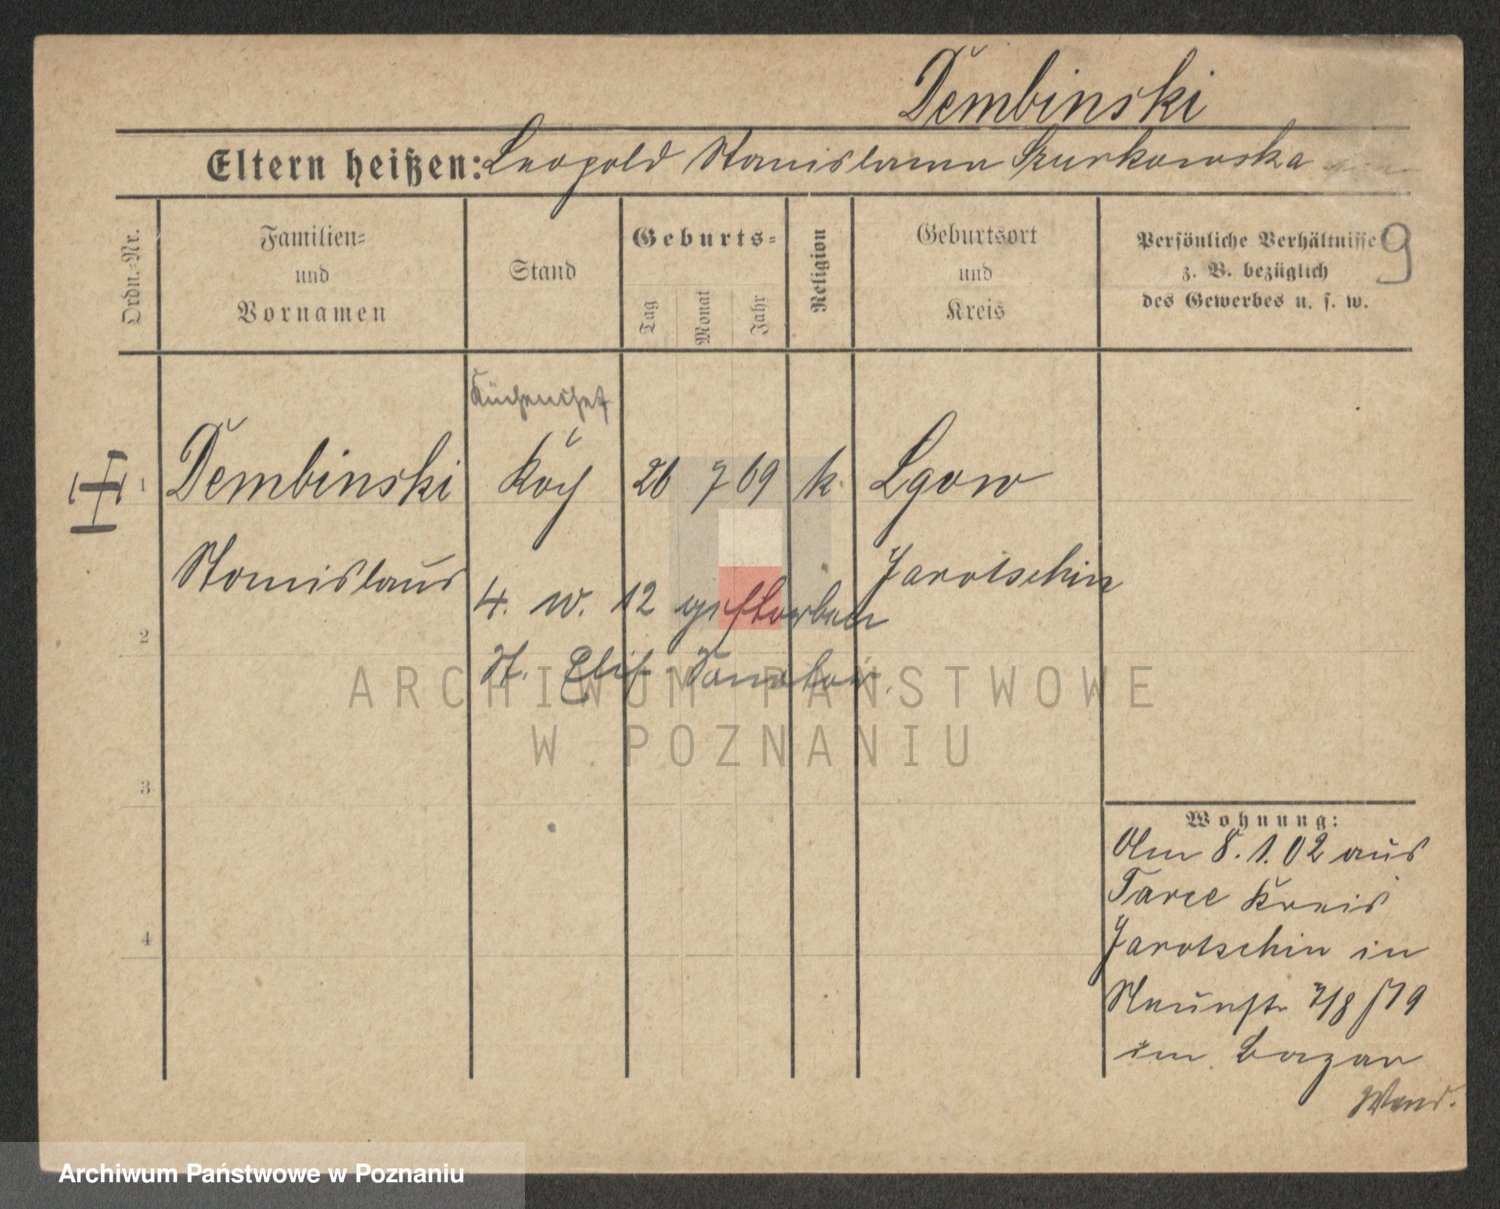 Dembinski
Eltern heißen: Leopold Stanislawa Szurkowska
Ordn.-Nr.
Familien- und Vornamen
Stand
Geburts-
Tag
Monat
Jahr
Religion
Geburtsort und Kreis
Persönliche Verhältnisse 9
z. B. bezüglich
des Gewerbes u. s. w.
Küchenchef
1 Dembinski Koch 26 7 69 k. Lgow
Stanislaus Jarotschin
4. 12 gestorben
2
St. Elis.
ARCHIWUM PAŃSTWOWE
W POZNANIU
3
Wohnung:
Am 8.1.02 aus
Tarce Kreis
4
Jarotschin in
Neuestr 7/8
im Bazar
Wend.
Archiwum Państwowe w Poznaniu